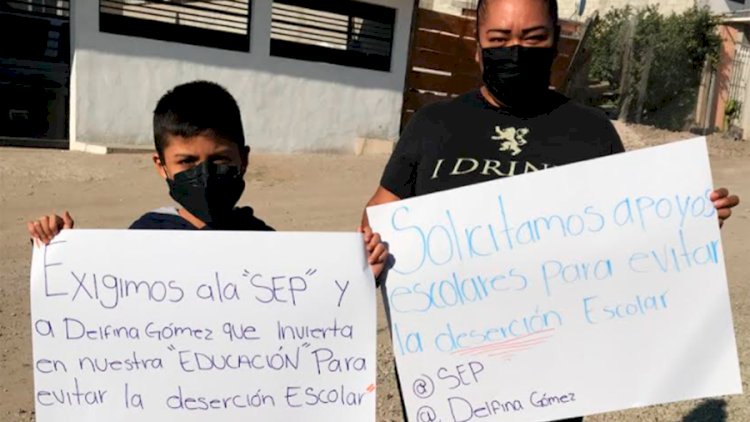 Exigimos a la "SEP" y
a Delfina Gómez que invierta
en nuestra "EDUCACIÓN" Para
evitar la deserción Escolar
I DRIN
Solicitamos apoyos
escolares para evitar
la deserción Escolar
@SEP
@Delfina Gómez